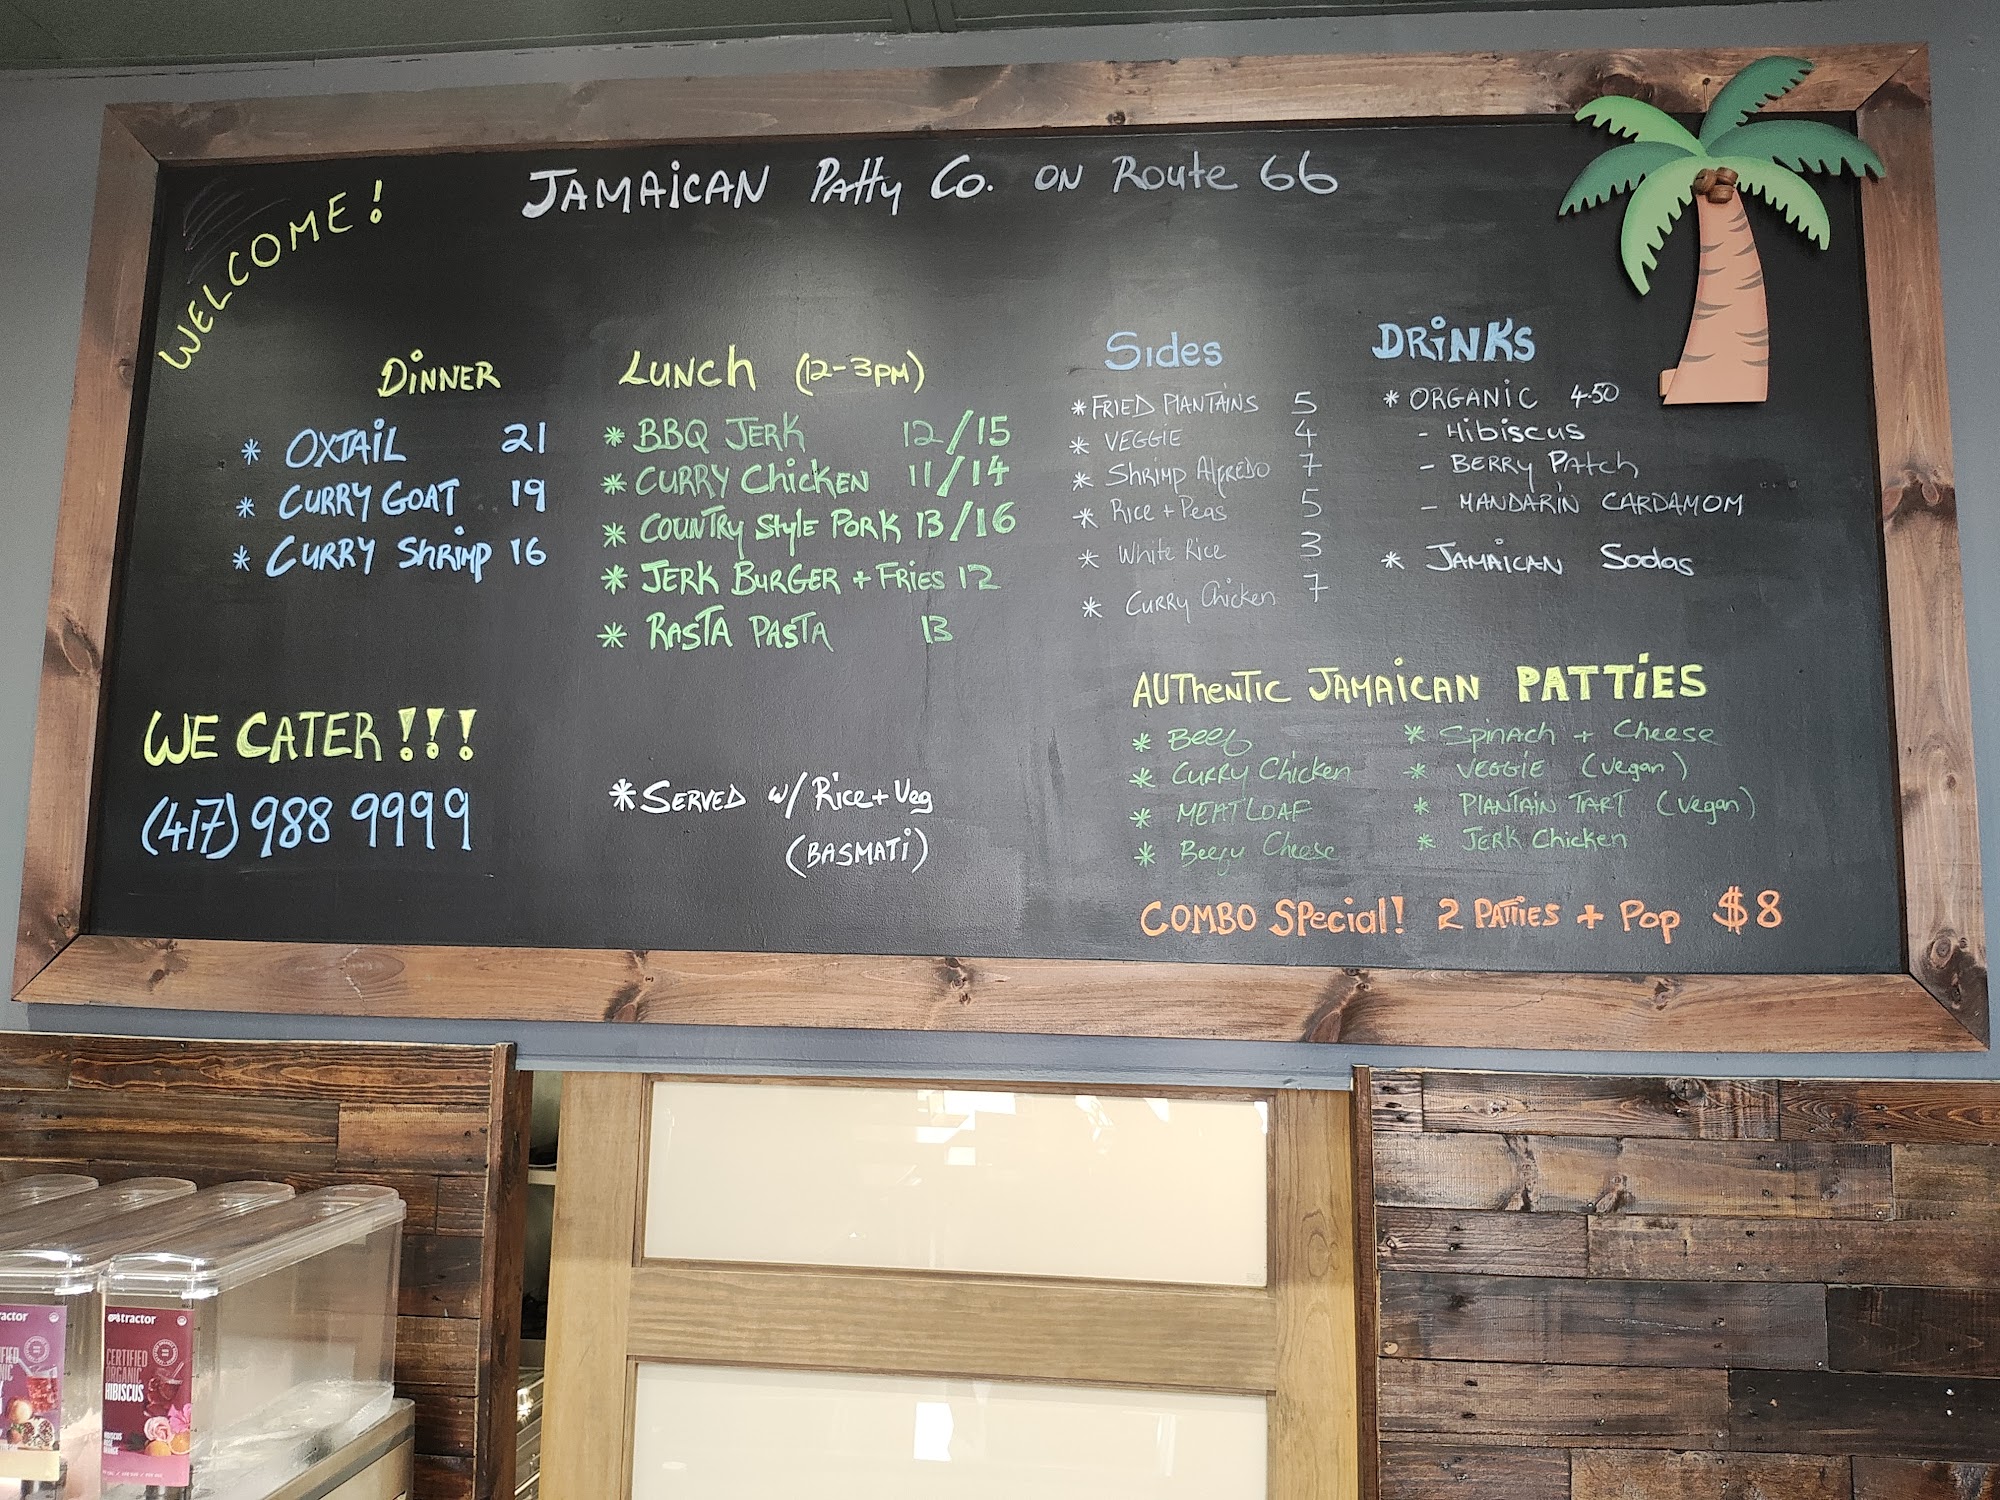 WELCOME!
JAMAICAN Patty Co. ON Route 66
DINNER
* OXTAIL 21
* CURRY GOAT 19
* CURRY Shrimp 16
WE CATER!!!
(417) 988 9999
LUNCH (12-3PM)
* BBQ JERK 12/15
* CURRY Chicken 11/14
* COUNTRY Style PORK 13/16
* JERK BURGER + FRIES 12
* RASTA PASTA 13
*SERVED w/ Rice+Veg
(BASMATI)
Sides
* FRIED PLANTAINS 5
* VEGGIE 4
* Shrimp Alfredo 7
* Rice + Peas 5
* White Rice 3
* Curry Chicken 7
DRINKS
* ORGANIC 4.50
- Hibiscus
- BERRY Patch
- MANDARIN CARDAMOM
* JAMAICAN Sodas
AUThENTIC JAMAICAN PATTIES
* Beef
* Curry Chicken
* MEATLOAF
* Beefy Cheese
* Spinach + Cheese
* VEGGIE (Vegan)
* PLANTAIN TART (Vegan)
* JERK Chicken
COMBO Special! 2 PATTIES + Pop $8
tractor
CERTIFIED
ORGANIC
HIBISCUS